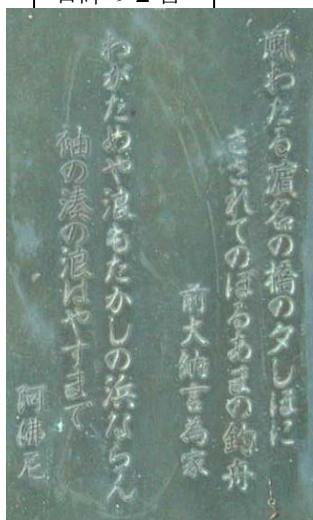 風わたる濱名の橋の夕しほに
さされてのぼるあまの釣舟
前大納言為家
わがためや浪もたかしの浜ならん
袖の湊の浪はやすまで
阿佛尼